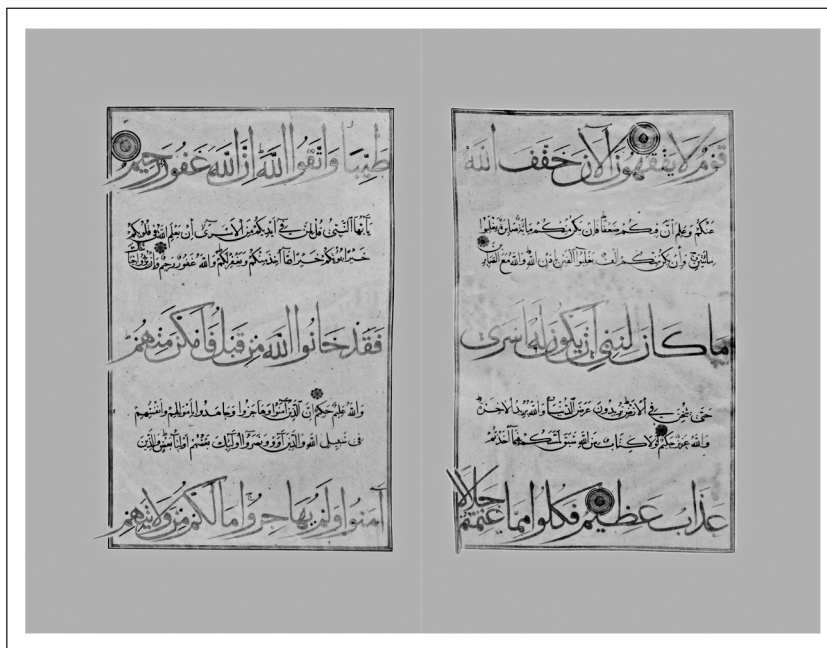 قوم لا يفقهون الآن خفف الله
عنكم وعلم أن فيكم ضعفا فإن يكن منكم مائة صابرة يغلبوا
مائتين وإن يكن منكم ألف يغلبوا ألفين بإذن الله والله مع الصابرين
ما كان لنبي أن يكون له أسرى
حتى يثخن في الأرض تريدون عرض الدنيا والله يريد الآخرة
والله عزيز حكيم لولا كتاب من الله سبق لمسكم فيما أخذتم
عذاب عظيم فكلوا مما غنمتم حلالا
طيبا واتقوا الله إن الله غفور رحيم
يا أيها النبي قل لمن في أيديكم من الأسرى إن يعلم الله في قلوبكم
خيرا يؤتكم خيرا مما أخذ منكم ويغفر لكم والله غفور رحيم وإن يريدوا خيانتك
فقد خانوا الله من قبل فأمكن منهم
والله عليم حكيم إن الذين آمنوا وهاجروا وجاهدوا بأموالهم وأنفسهم
في سبيل الله والذين آووا ونصروا أولئك بعضهم أولياء بعض والذين
آمنوا ولم يهاجروا ما لكم من ولايتهم